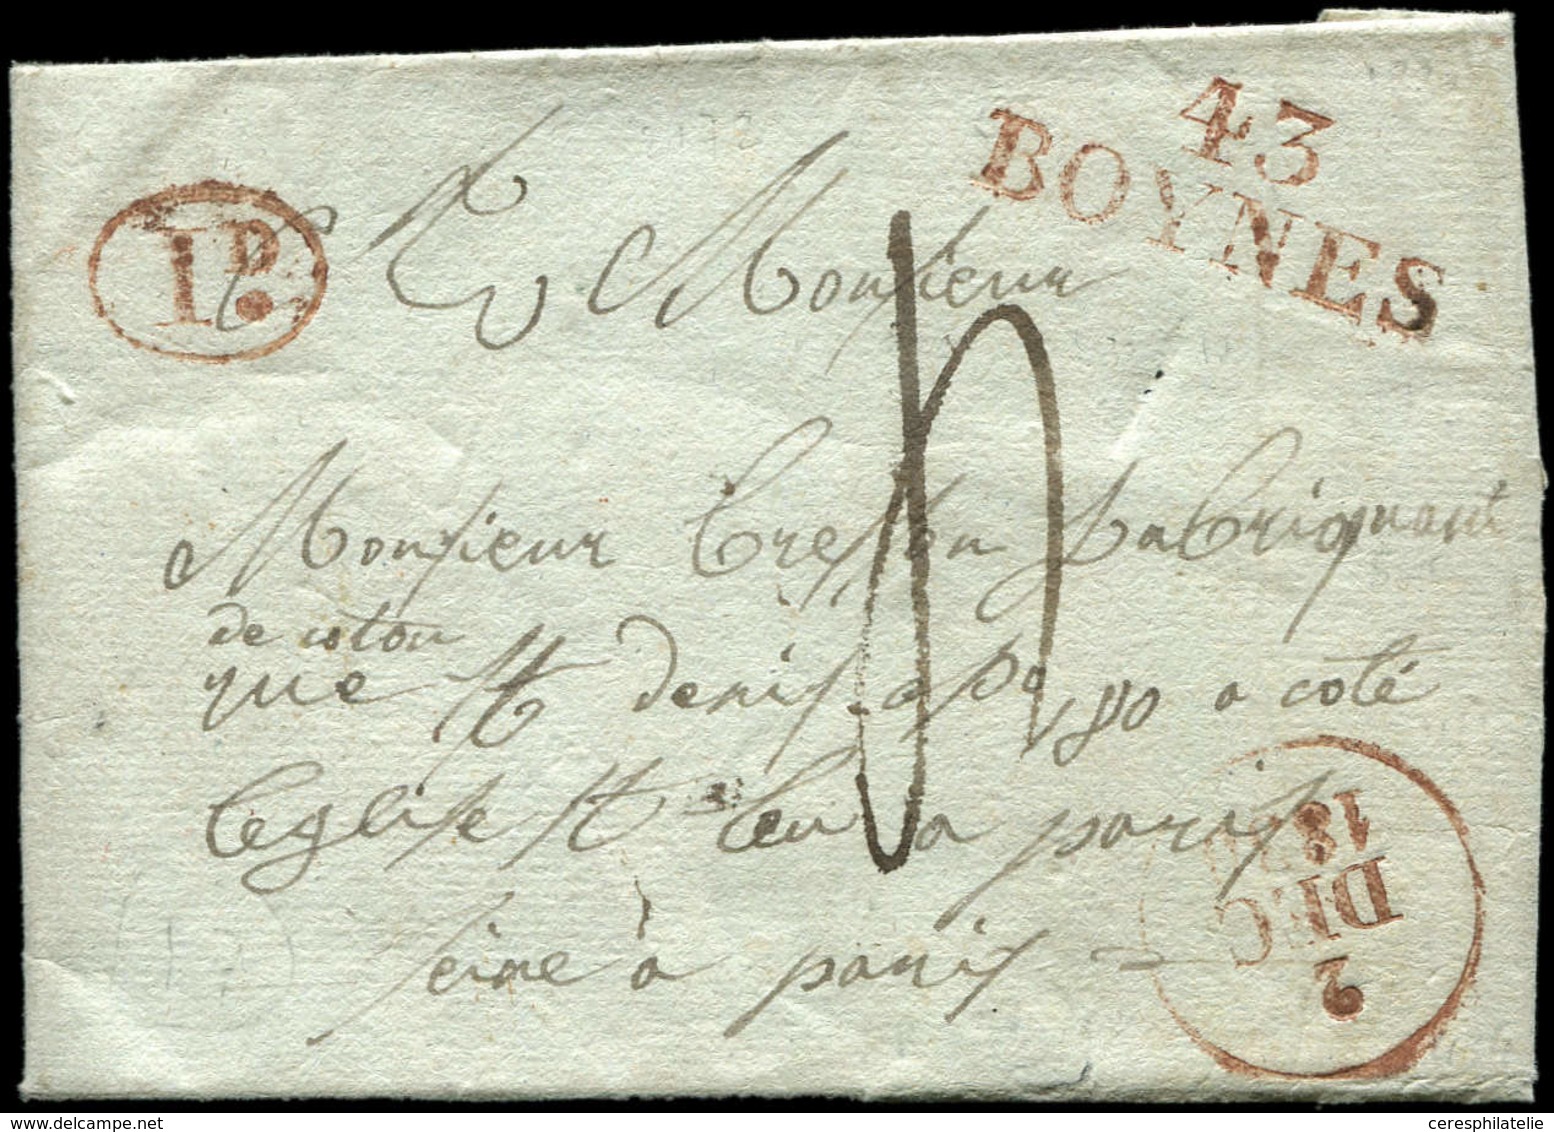 43
BOYNES
1D.
A Monsieur
4
Monsieur Cresson fabriquant
de coton
rue St denis n° 180 a coté
l'eglise St leu a paris
seine à paris
2
DEC
18
ceresphilatelie